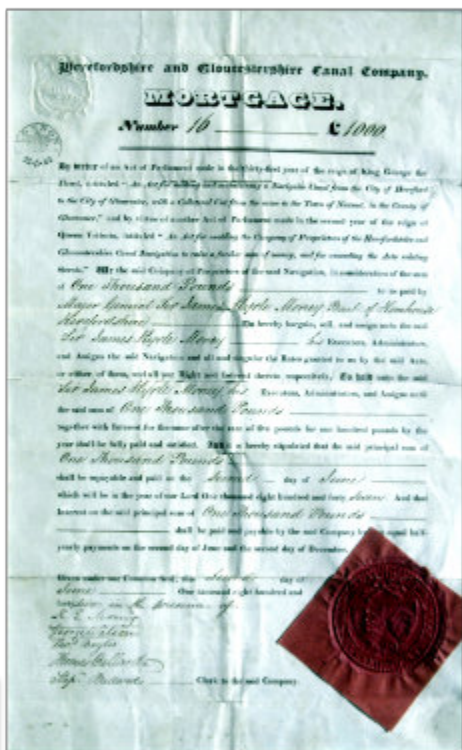 Herefordshire and Gloucestershire Canal Company.
MORTGAGE.
Number 16 £ 1000
By virtue of an Act of Parliament made in the thirty-first year of the reign of King George the
Third, intituled "An Act for making and maintaining a Navigable Canal from the City of Hereford
to the City of Gloucester, with a Collateral Cut from the same to the Town of Newent, in the County of
Gloucester," and by virtue of another Act of Parliament made in the second year of the reign of
Queen Victoria, intituled "An Act for enabling the Company of Proprietors of the Herefordshire and
Gloucestershire Canal Navigation to raise a further sum of money, and for amending the Acts relating
thereto," We the said Company of Proprietors of the said Navigation, in consideration of the sum
of One Thousand Pounds to us paid by
Major General Sir James Kyrle Money Bart of
Herefordshire Do hereby bargain, sell, and assign unto the said
Sir James Kyrle Money his Executors, Administrators,
and Assigns the said Navigation and all and singular the Rates granted to us by the said Acts,
or either of them, and all our Right and Interest therein respectively, To hold unto the said
Sir James Kyrle Money his Executors, Administrators, and Assigns until
the said sum of One Thousand Pounds
together with Interest for the same after the rate of five pounds for one hundred pounds by the
year shall be fully paid and satisfied. And it is hereby stipulated that the said principal sum of
One Thousand Pounds
shall be repayable and paid on the second day of June
which will be in the year of our Lord One thousand eight hundred and forty seven. And that
Interest on the said principal sum of One Thousand Pounds
shall be paid and payable by the said Company by equal half-
yearly payments on the second day of June and the second day of December.
Given under our Common Seal, this second day of
June One thousand eight hundred and
in the presence of
Clerk to the said Company.